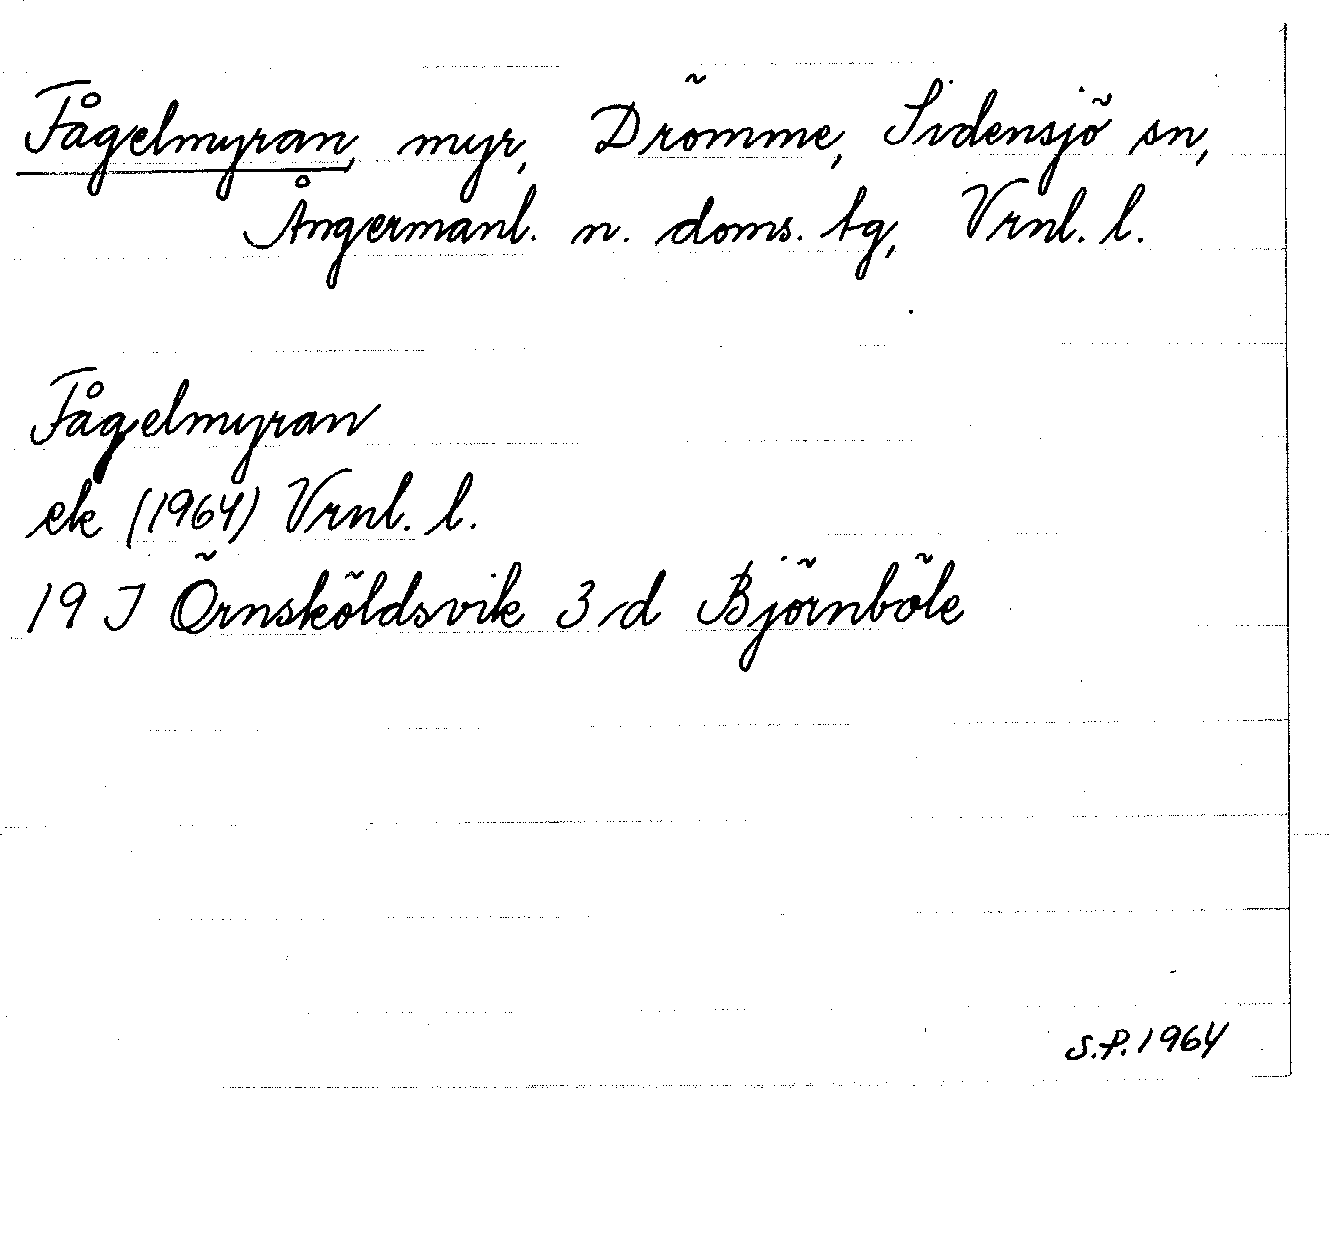 Fågelmyran, myr, Drömme, Sidensjö sn,
Ångermanl. n. doms. tg, Vrnl. l.
Fågelmyran
ek (1964) Vrnl. l.
19 J Örnsköldsvik 3 d Björnböle
S.P. 1964